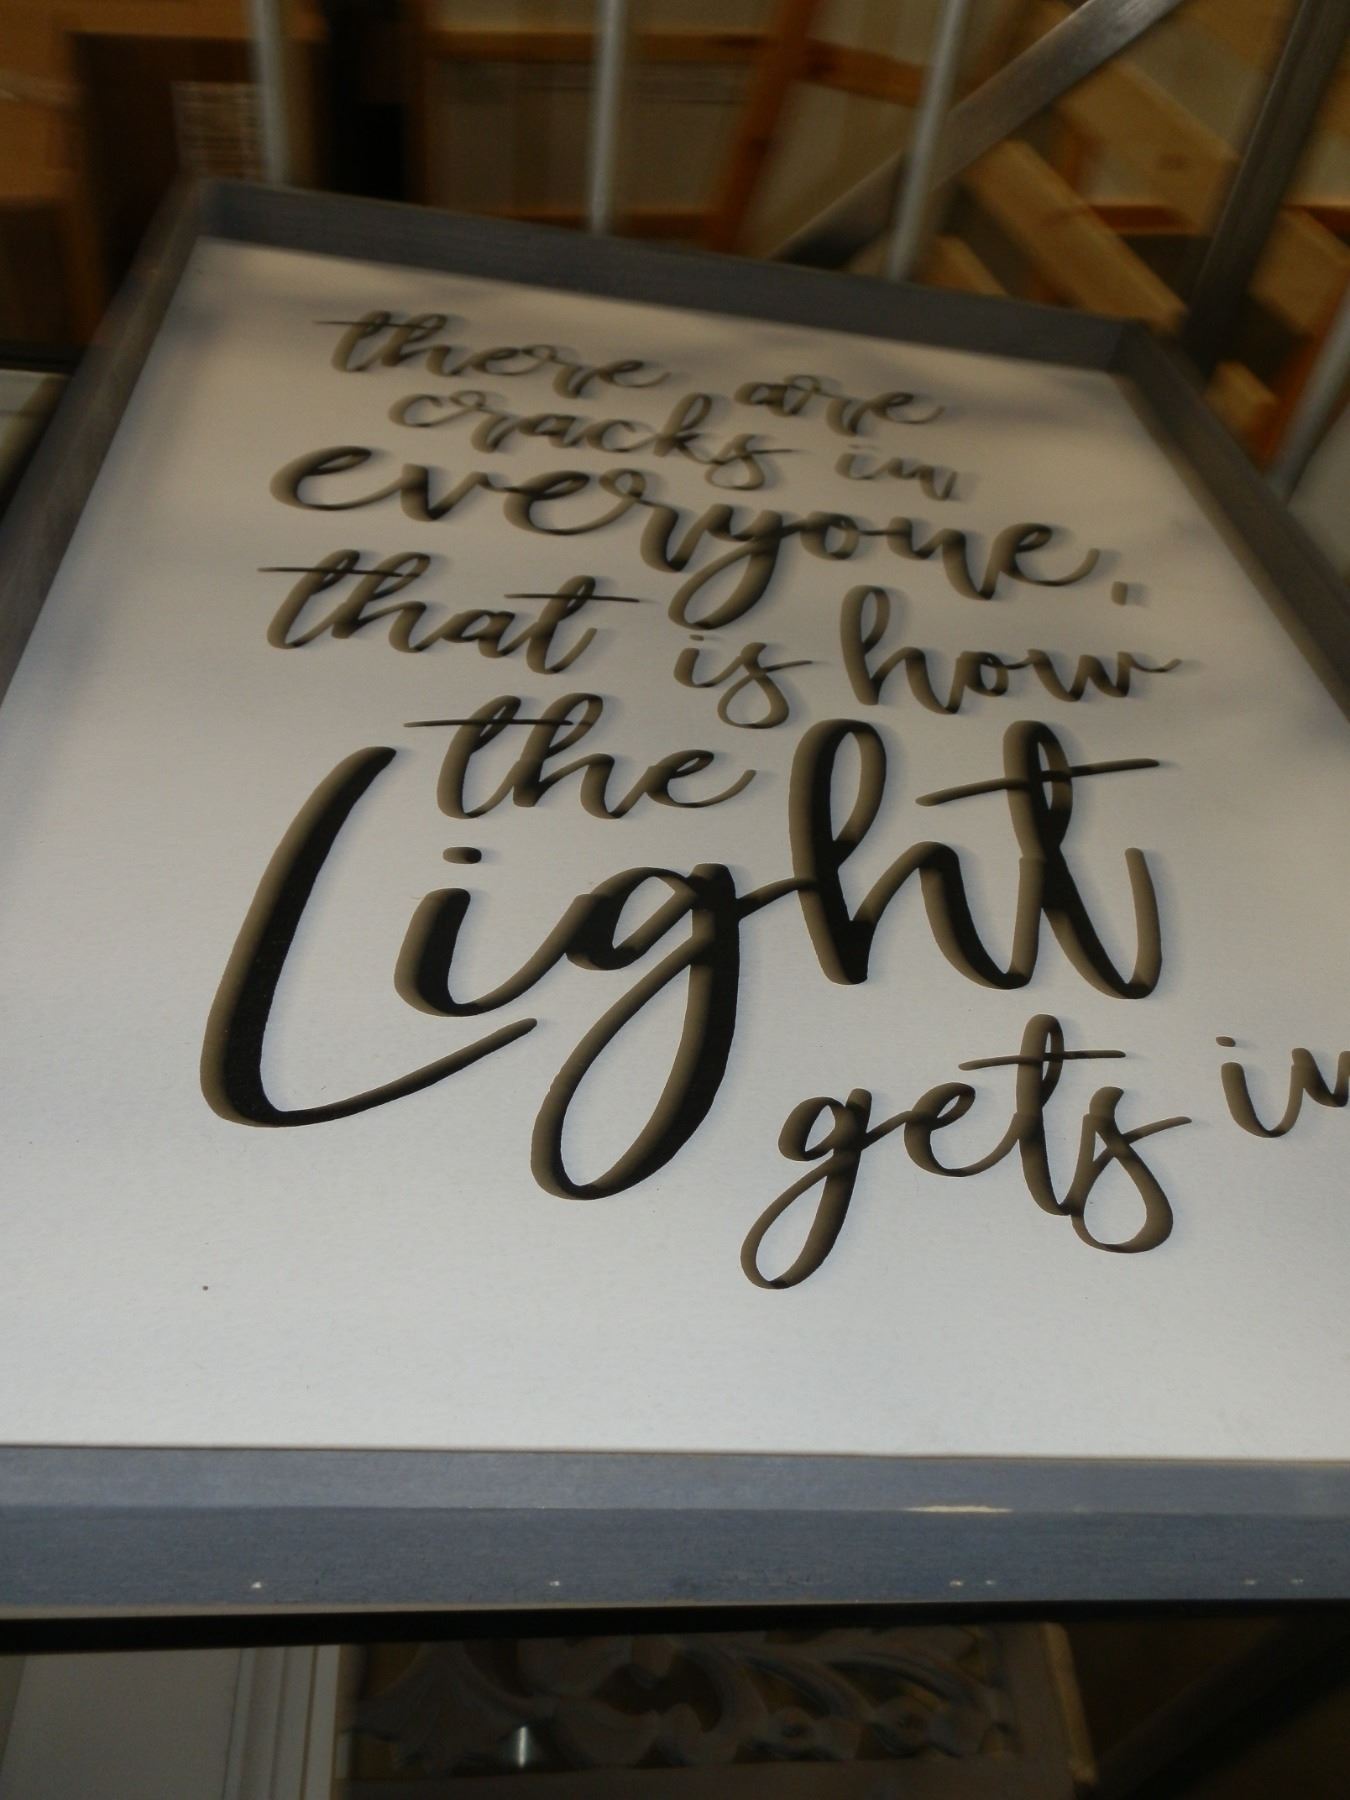 there are
cracks in
everyone.
that is how
the
Light
gets in